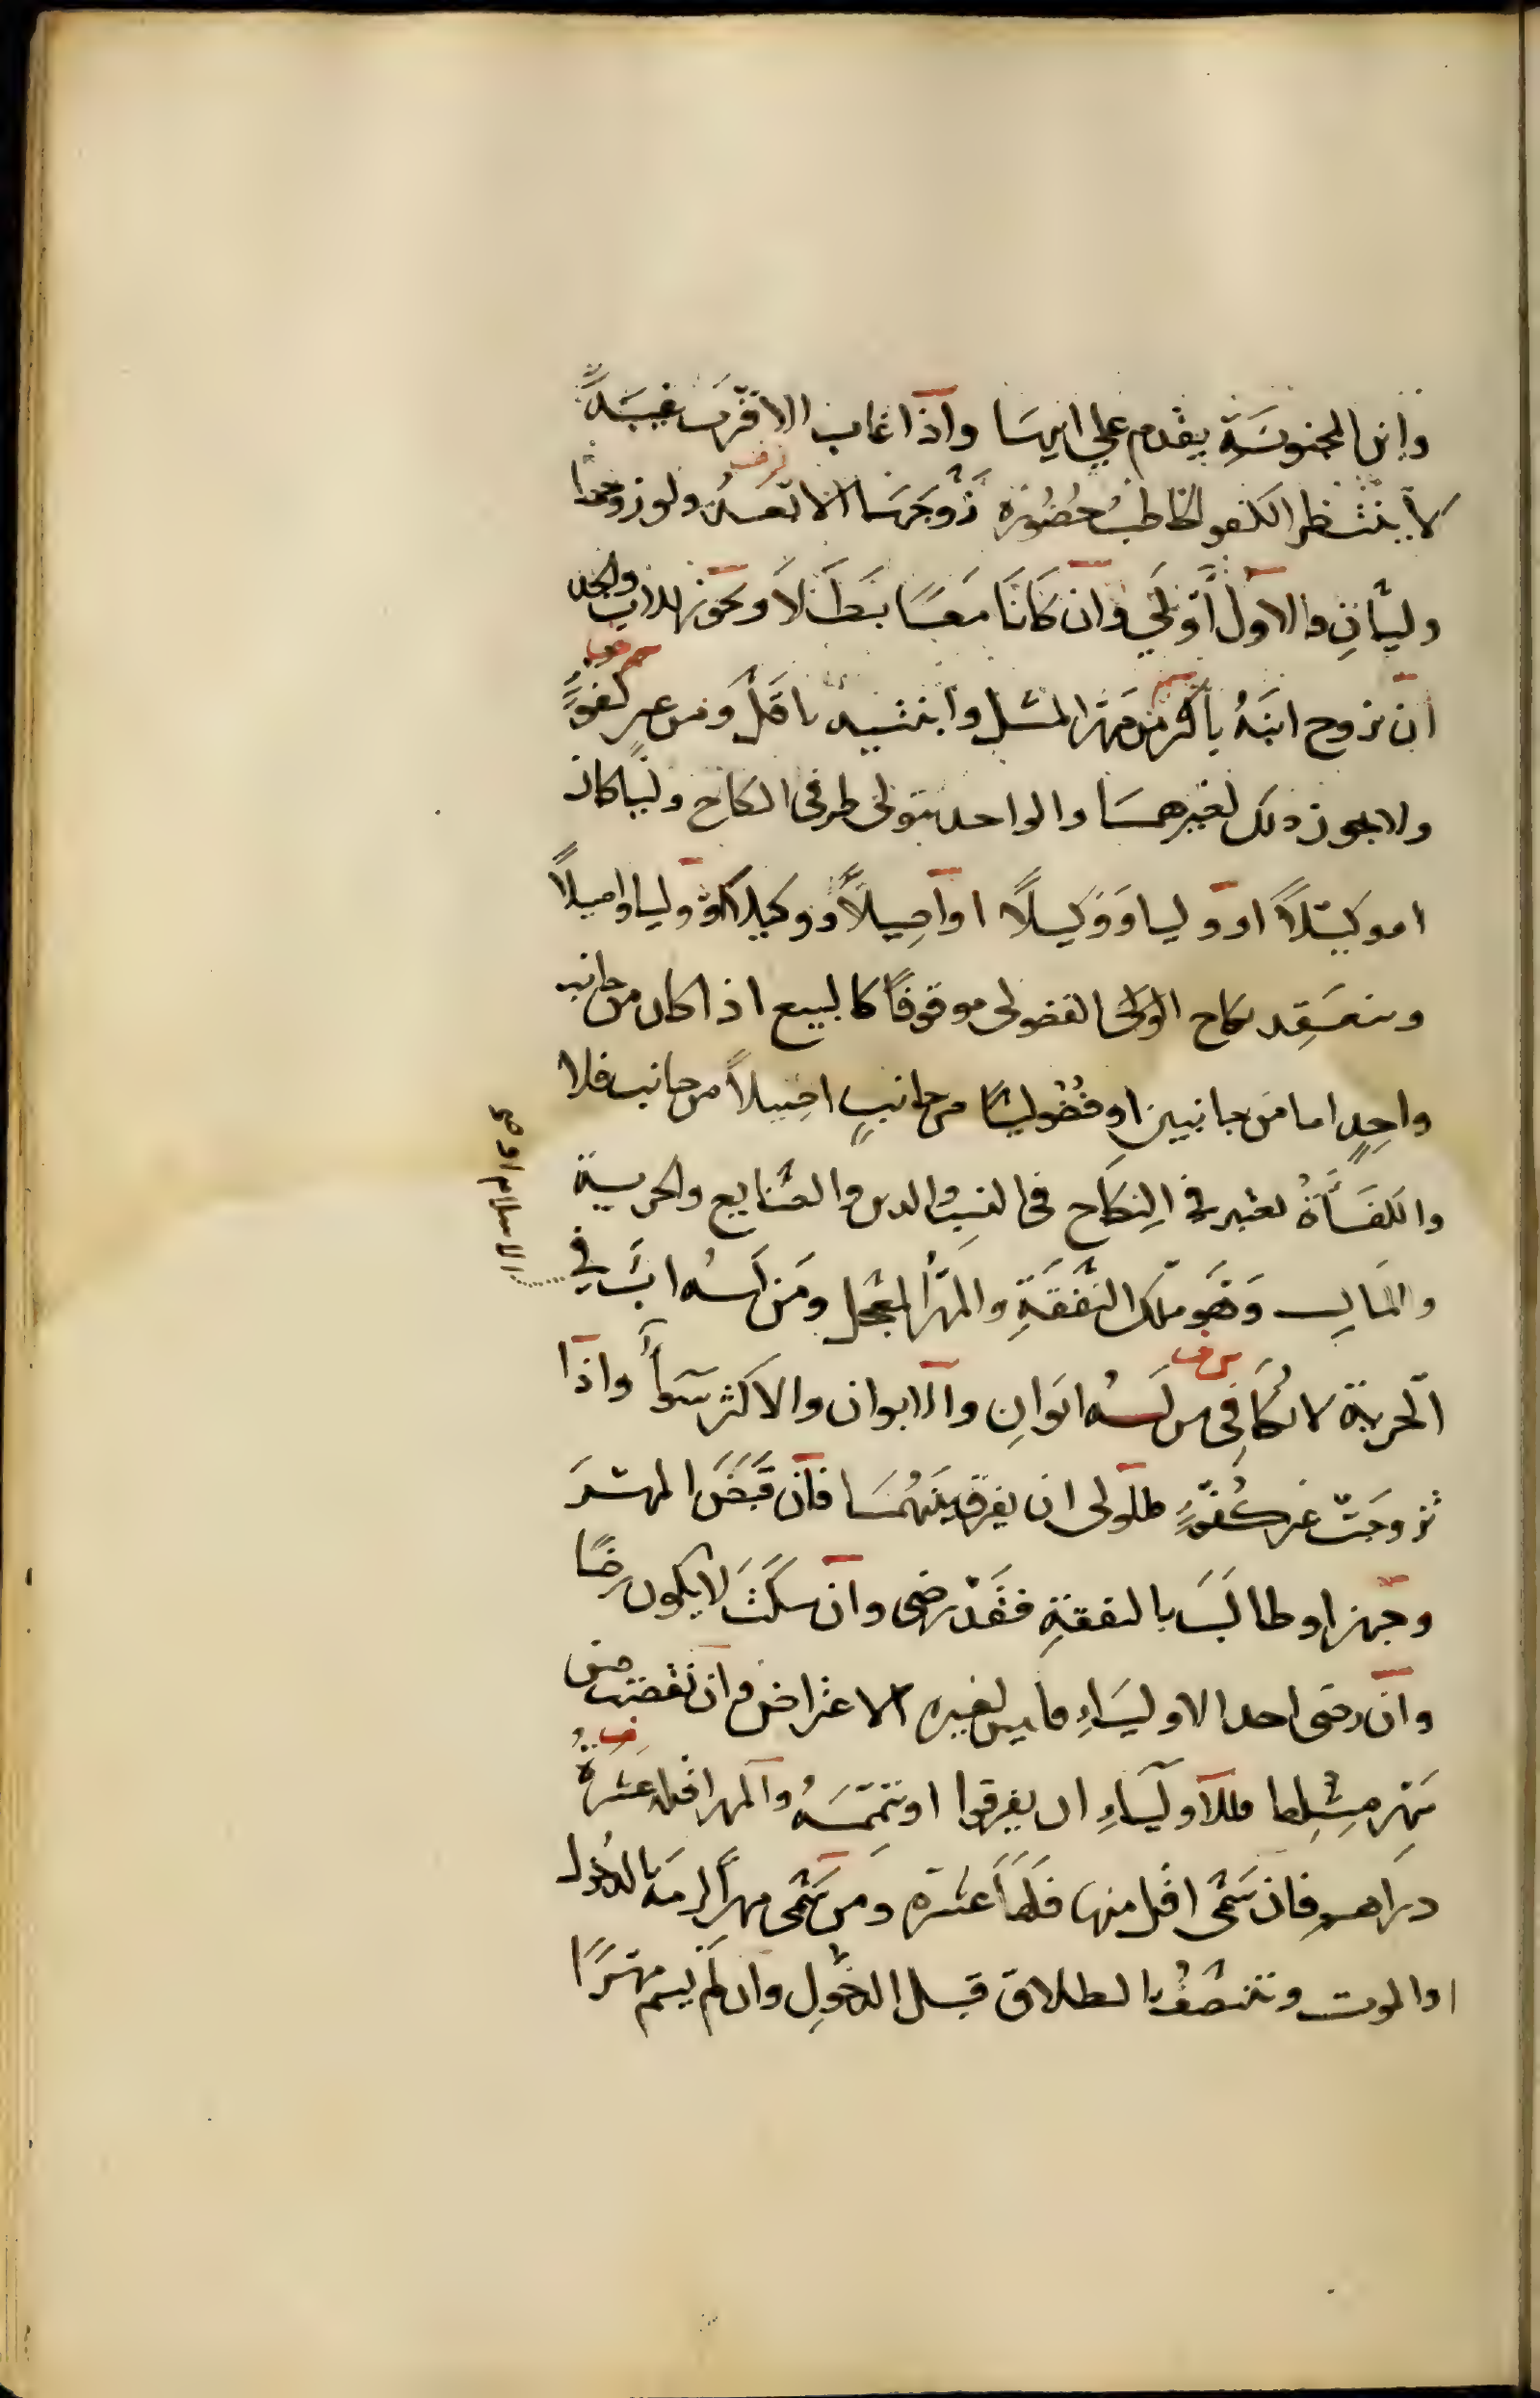 وابن المجنونة يقدم على ابيها واذا غاب الاقرب غيبة
لا ينتظر الكفو الخاطب حضوره زوجها الابعد ولو زوجها
وليان فالاول أولى وان كانا معا بطلا ويجوز للاب والجد
ان يزوج ابنه باكثر من مهر المثل وابنتيه باقل ومن غير كفو
ولا يجوز ذلك لغيرهما والواحد يتولى طرفى النكاح وليا كان
او وكيلا او وليا ووكيلا او اصيلا ووكيلا او وليا واصيلا
وينعقد نكاح الفضولى موقوفا كالبيع اذا كان من جانب
واحد اما من جانبين او فضوليا من جانب اصيلا من جانب فلا
والكفاءة تعتبر فى النكاح فى النسب والدين والصنايع والحرية
والمال وهو ملك النفقة والمهر المعجل ومن له اب فى
الاسلام او
الحرية لا يكافى من له ابوان والابوان والاكثر سواء واذا
تزوجت غير كفو فللولى ان يفرق بينهما فان قبض المهر
وجهز او طالب بالنفقة فقد رضى وان سكت لا يكون رضا
وان رضى احد الاولياء فليس لغيره الاعتراض وان نقصت من
مهر مثلها فللاولياء ان يفرقوا او يتممه والمهر اقله عشرة
دراهم فان سمى اقل منها فلها عشرة ومن سمى مهرا لزمه بالدخول
او الموت ويتنصف بالطلاق قبل الدخول وان لم يسم مهرا